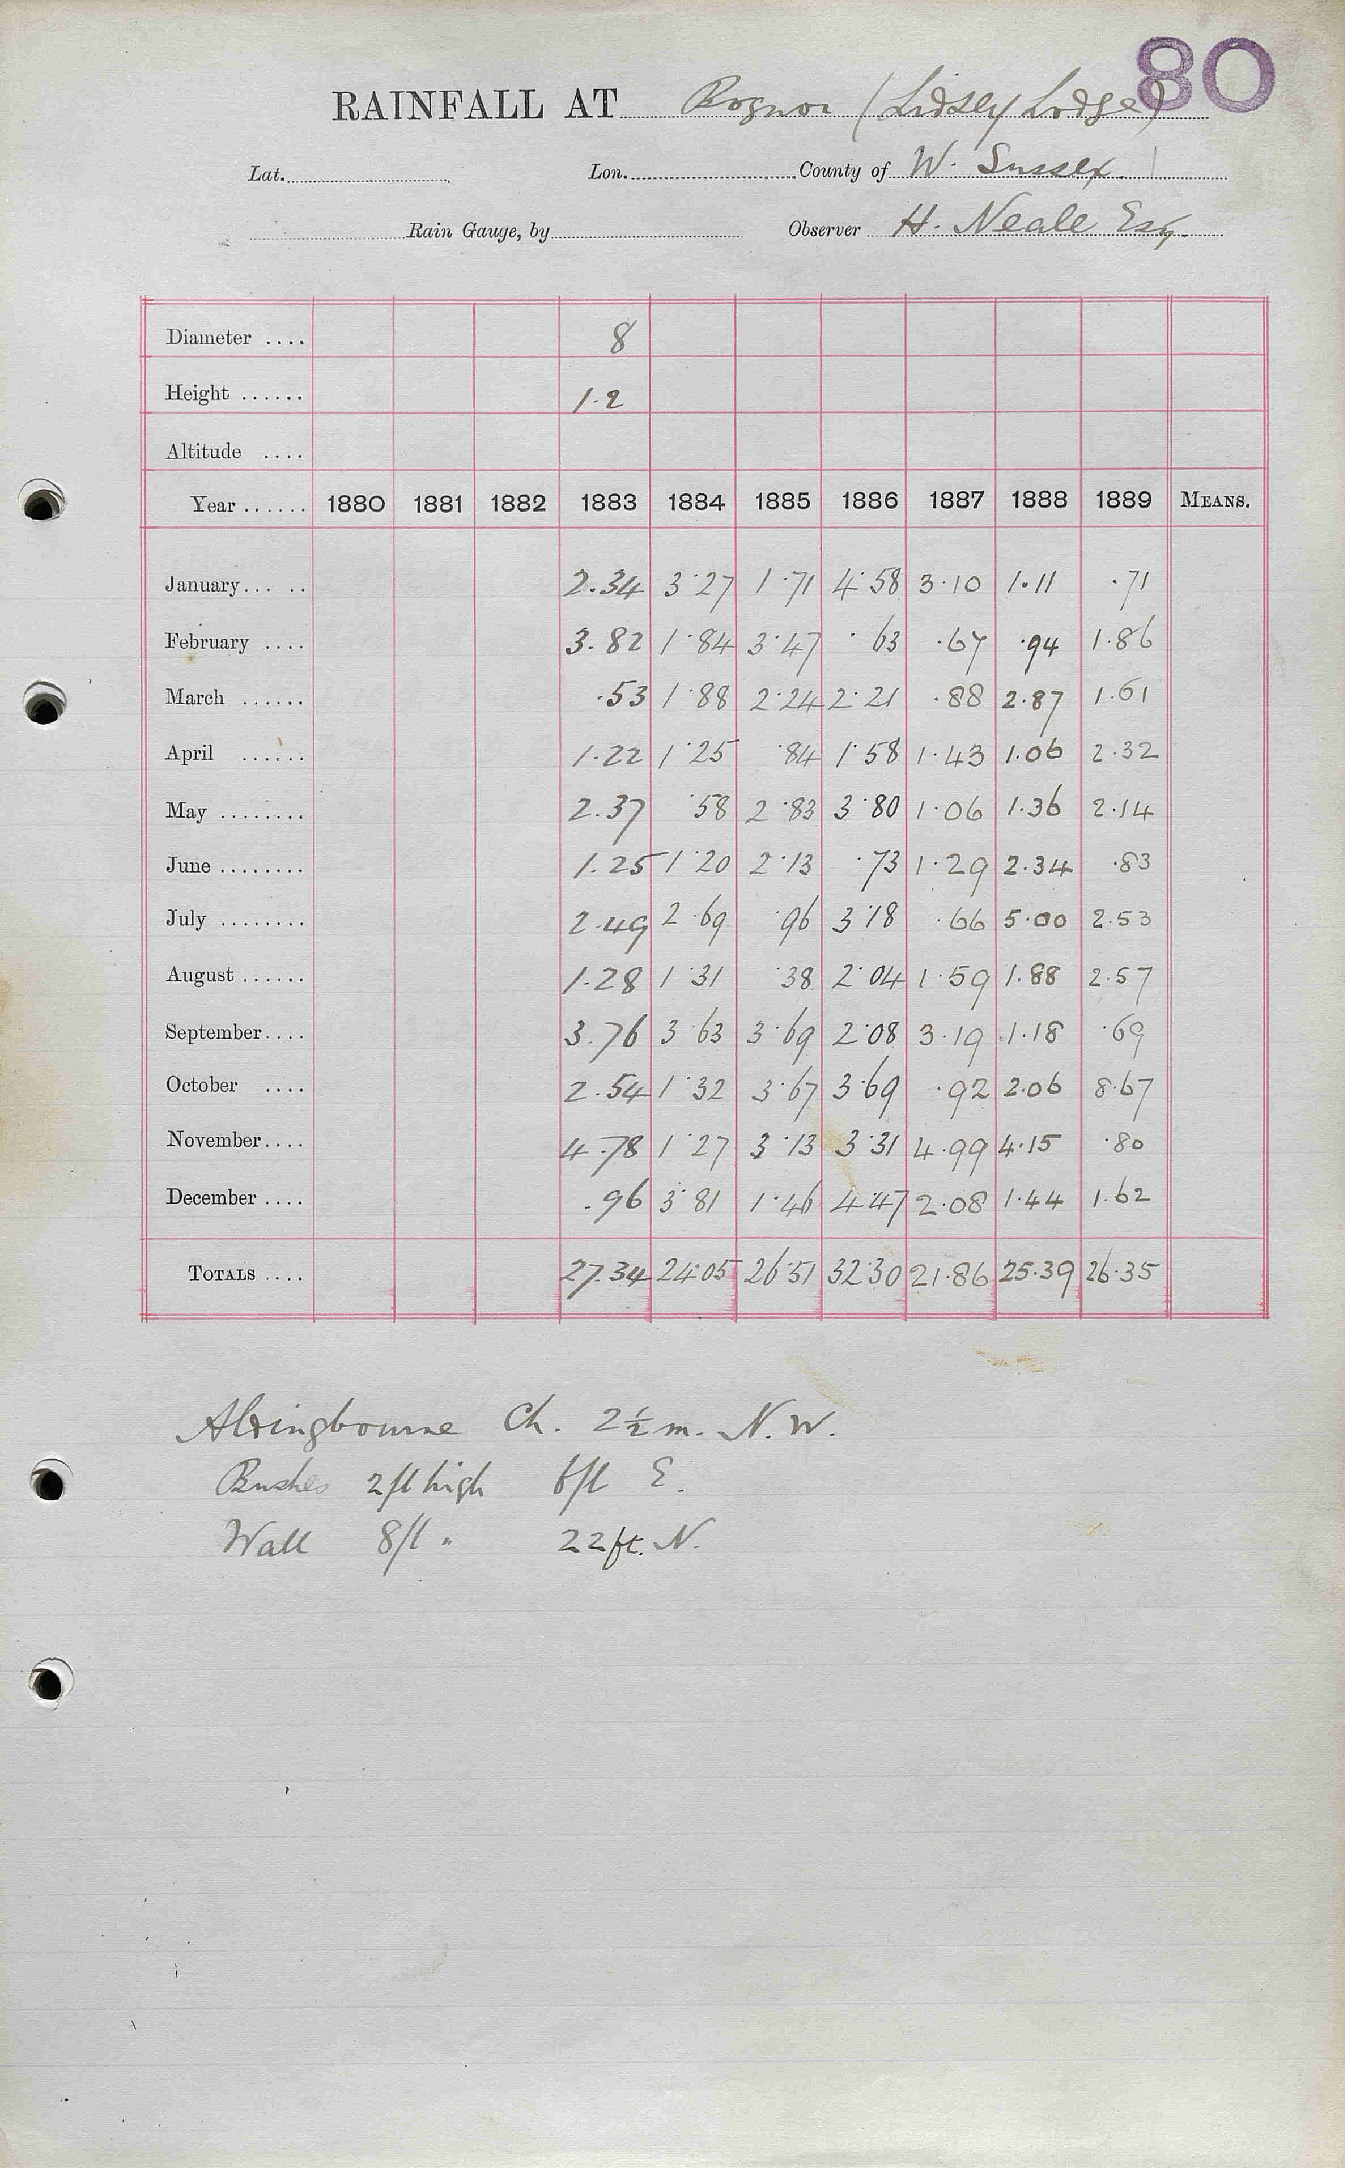 80
RAINFALL AT Bognor (Lidsey Lodge)
Lat. Lon. County of W. Sussex.
Rain Gauge, by Observer H. Neale Esq.
Diameter .... 8
Height ...... 1.2
Altitude ....
Year ...... 1880 1881 1882 1883 1884 1885 1886 1887 1888 1889 MEANS.
January... .. 2.34 3.27 1.71 4.58 3.10 1.11 .71
February .... 3.82 1.84 3.47 .63 .67 .94 1.86
March ...... .53 1.88 2.24 2.21 .88 2.87 1.61
April ...... 1.22 1.25 .84 1.58 1.43 1.06 2.32
May ........ 2.37 .58 2.83 3.80 1.06 1.36 2.14
June ........ 1.25 1.20 2.13 .73 1.29 2.34 .83
July ........ 2.49 2.69 .96 3.18 .66 5.00 2.53
August ...... 1.28 1.31 .38 2.04 1.59 1.88 2.57
September.... 3.76 3.63 3.69 2.08 3.19 1.18 .69
October .... 2.54 1.32 3.67 3.69 .92 2.06 8.67
November.... 4.78 1.27 3.13 3.31 4.99 4.15 .80
December .... .96 3.81 1.46 4.47 2.08 1.44 1.62
TOTALS .... 27.34 24.05 26.51 32.30 21.86 25.39 26.35
Aldingbourne Ch. 2½ m. N.W.
Bushes 2 ft high 6 ft E.
Wall 8 ft " 22 ft. N.